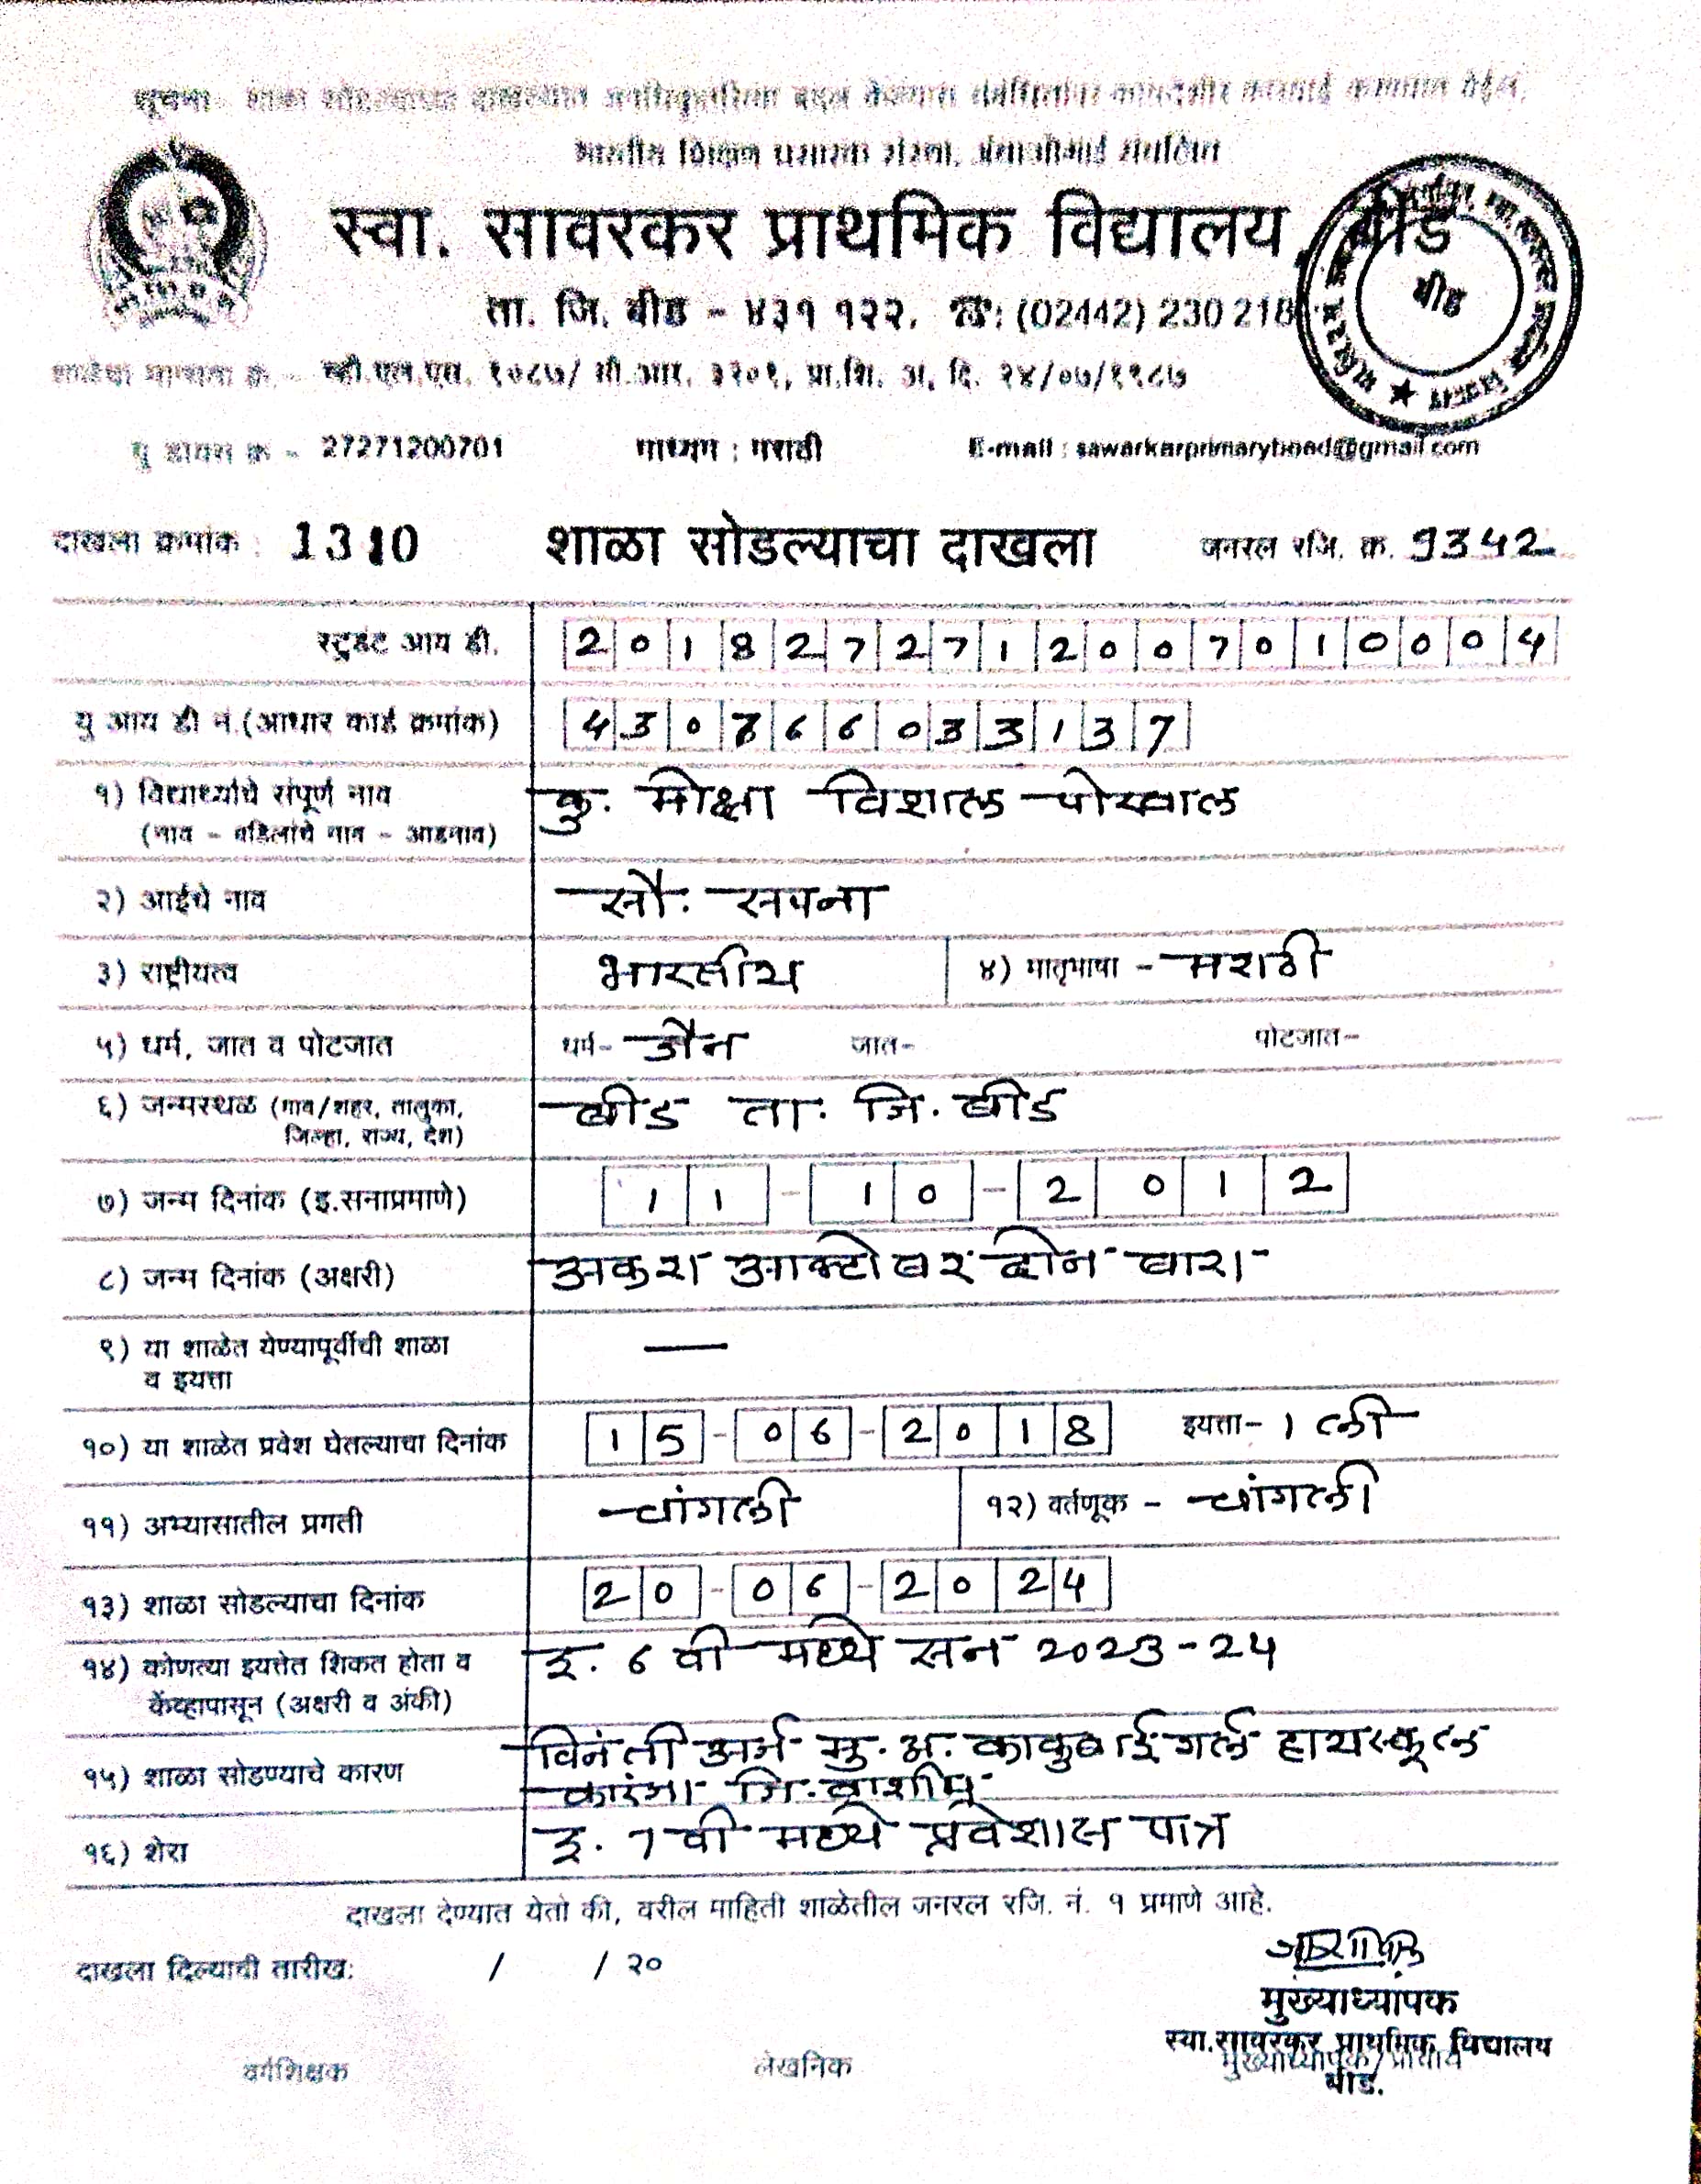 भारतीय शिक्षण प्रसारक संस्था, अंबाजोगाई संचलित
स्वा. सावरकर प्राथमिक विद्यालय, बीड
ता. जि. बीड - ४३१ १२२. ☎: (02442) 230 218
शाळेचा मान्यता क्र. - व्ही.एल.एस. १०८७/ सी.आर. ३२०१, प्रा.शि. अ. दि. २४/०७/१९८७
यु डायस क्र - 27271200701 माध्यम : मराठी E-mail : sawarkarprimarybeed@gmail.com
दाखला क्रमांक : 1310 शाळा सोडल्याचा दाखला जनरल रजि. क्र. 9342
स्टुडंट आय डी. 2018272712007010004
यु आय डी नं.(आधार कार्ड क्रमांक) 430766033137
१) विद्यार्थ्याचे संपूर्ण नाव कु. मोक्षा विशाल पोरवाल
(नाव - वडिलांचे नाव - आडनाव)
२) आईचे नाव सौ. सपना
३) राष्ट्रीयत्व भारतीय ४) मातृभाषा - मराठी
५) धर्म, जात व पोटजात धर्म- जैन जात- पोटजात-
६) जन्मस्थळ (गाव/शहर, तालुका, बीड ता. जि. बीड
जिल्हा, राज्य, देश)
७) जन्म दिनांक (इ.सनाप्रमाणे) 11 - 10 - 2012
८) जन्म दिनांक (अक्षरी) अकरा आक्टोबर दोन बारा
९) या शाळेत येण्यापूर्वीची शाळा —
व इयत्ता
१०) या शाळेत प्रवेश घेतल्याचा दिनांक 15 - 06 - 2018 इयत्ता- 1 ली
११) अभ्यासातील प्रगती चांगली १२) वर्तणूक - चांगली
१३) शाळा सोडल्याचा दिनांक 20 - 06 - 2024
१४) कोणत्या इयत्तेत शिकत होता व इ. 6 वी मध्ये सन 2023-24
केंव्हापासून (अक्षरी व अंकी)
विनंती अर्ज मु. अ. काकुबाई गर्ल्स हायस्कूल
१५) शाळा सोडण्याचे कारण कारंजा जि. वाशीम
१६) शेरा इ. 7 वी मध्ये प्रवेशास पात्र
दाखला देण्यात येतो की, वरील माहिती शाळेतील जनरल रजि. नं. १ प्रमाणे आहे.
दाखला दिल्याची तारीख: / / २०
मुख्याध्यापक
स्वा.सावरकर प्राथमिक विद्यालय
वर्गशिक्षक लेखनिक मुख्याध्यापक/प्राचार्य
बीड.